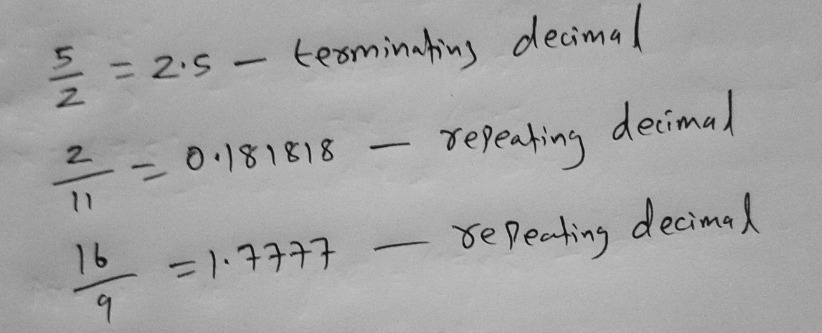 5/2 = 2.5 — terminating decimal
2/11 = 0.181818 — repeating decimal
16/9 = 1.7777 — repeating decimal